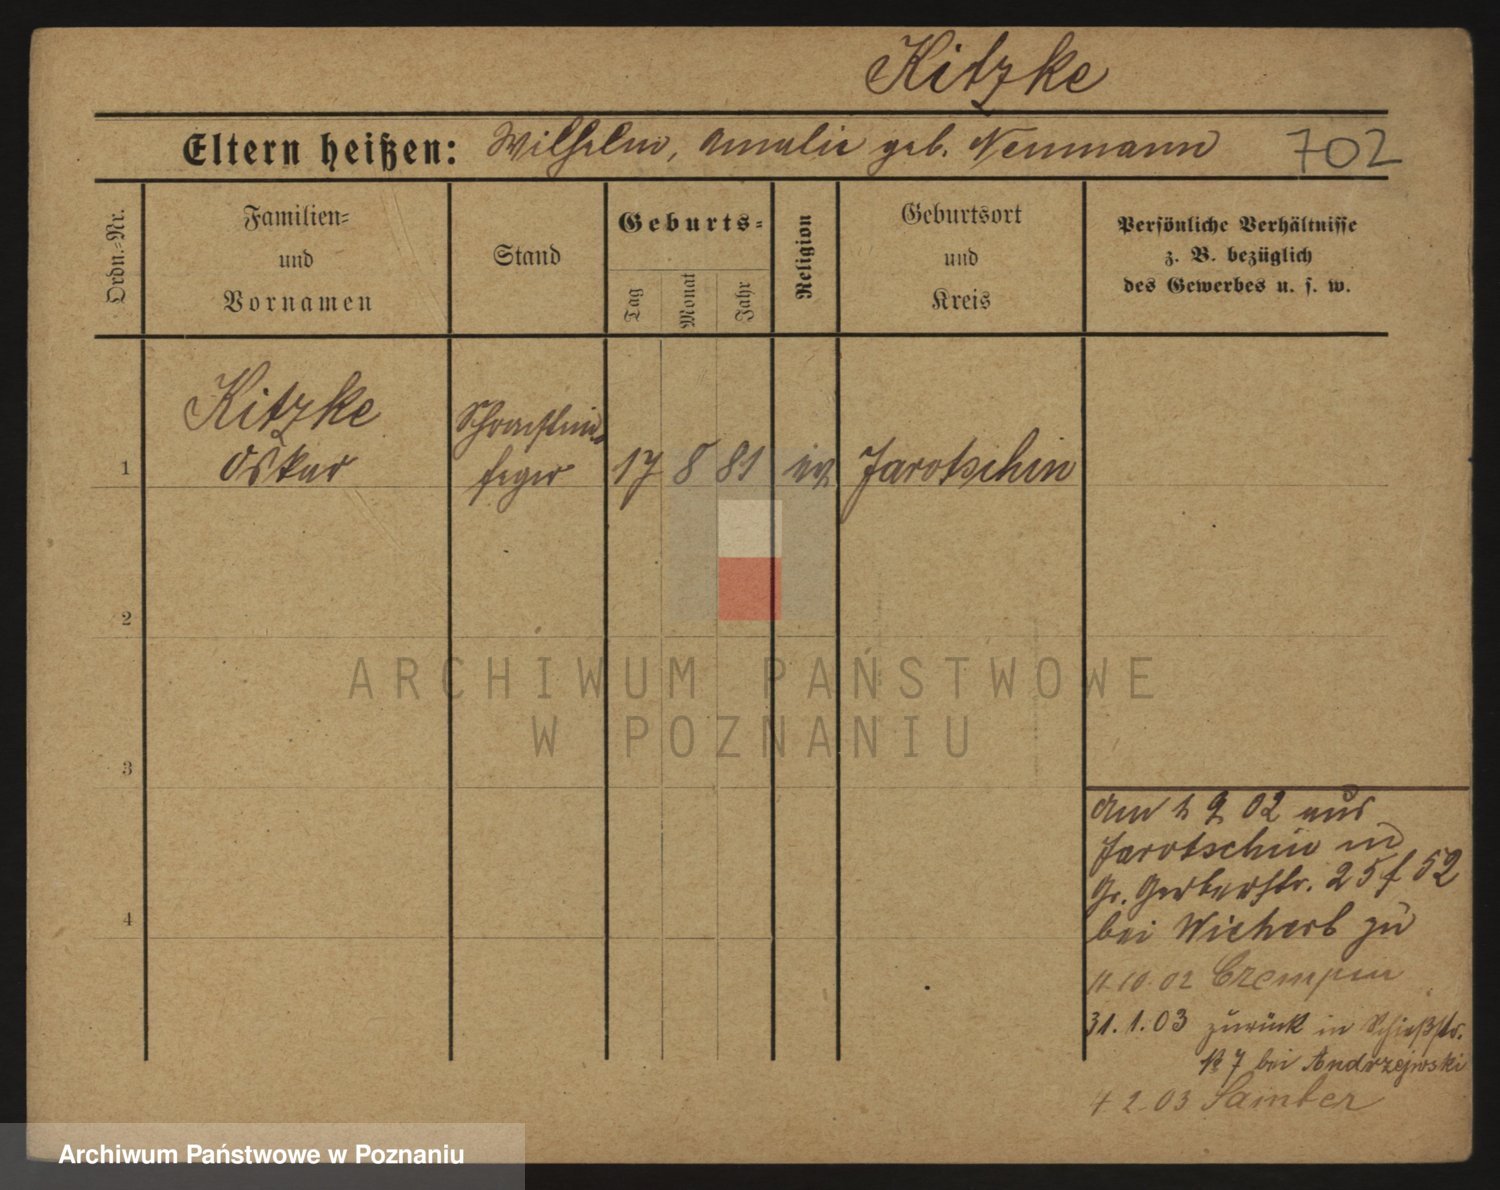 Kitzke
Eltern heißen: Wilhelm, Amalie geb. Neumann 702
Ordn.=Nr.
Familien=
und
Vornamen
Stand
Geburts=
Tag
Monat
Jahr
Religion
Geburtsort
und
Kreis
Persönliche Verhältnisse
z. B. bezüglich
des Gewerbes u. s. w.
Kitzke
Oskar
Schornstein=
feger
1
17 8 81 ev. Jarotschin
2
3
4
Am 1 9 02 aus
Jarotschin in
Gr. Gerberstr. 25 f 52
bei Wicherb zu
4.10.02 Czempin
31.1.03 zurück in Schießstr.
No 7 bei Andrzejwski
4 2.03 Samter
ARCHIWUM PAŃSTWOWE
W POZNANIU
Archiwum Państwowe w Poznaniu